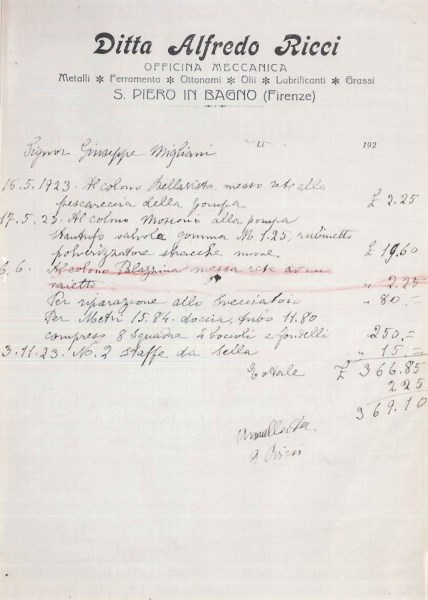 Ditta Alfredo Ricci
OFFICINA MECCANICA
Metalli * Ferramenta * Ottonami * Olii * Lubrificanti * Grassi
S. PIERO IN BAGNO (Firenze)
Signor Giuseppe Migliani li 192
15.5.1923. Al colono Bellavista messo rete alla
pescareccia della pompa £ 2.25
17.5.23. Al colono Mosconi alla pompa
stantufo valvola gomma M 1.25, rubinetto
polverizzatore stracche nuove. £ 19.60
6.6. Al colono Palazzina messa rete
" 2.25
Per riparazione allo " 80.=
Per Metri 15.84. doccia, tubo 11.80
compreso 8 Squadre 2 bocioli e 250.=
3.11.23. N. 2 Staffe da Sella " 15.=
Totale £ 366.85
2 25
369.10
Annullata
A Ricci